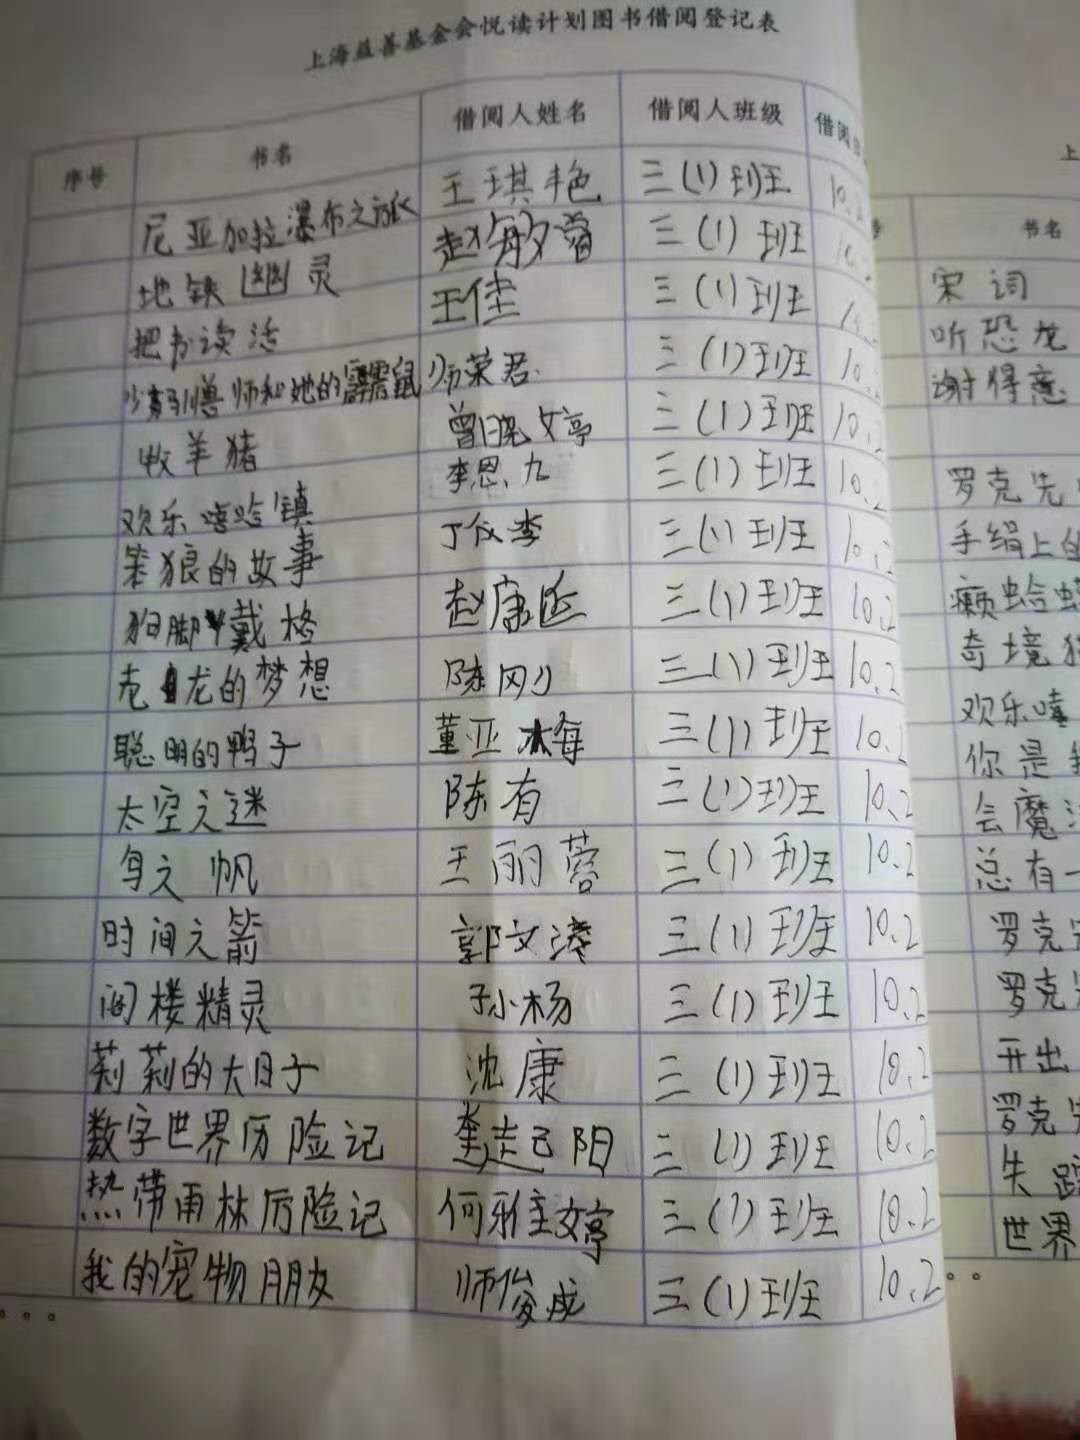 上海益善基金会悦读计划图书借阅登记表
序号 书名 借阅人姓名 借阅人班级 借阅
尼亚加拉瀑布之旅 王琪艳 三(1)班 10.2
地铁幽灵 赵 三(1)班
把书读活 王佳 三(1)班
少女驯兽师和她的霹雳鼠 师荣君 三(1)班 10.2
牧羊猪 曾晓婷 三(1)班 10.2
欢乐嘻哈镇 李恩九 三(1)班 10.2
笨狼的故事 丁仪李 三(1)班 10.2
狗脚丫戴格 赵康延 三(1)班 10.2
龙的梦想 陈刚 三(1)班 10.2
聪明的鸭子 董亚梅 三(1)班 10.2
太空之谜 陈有 三(1)班 10.2
鸟之帆 王丽蓉 三(1)班 10.2
时间之箭 郭文港 三(1)班 10.2
阁楼精灵 孙杨 三(1)班 10.2
莉莉的大日子 沈康 三(1)班 10.2
数字世界历险记 阳 三(1)班 10.2
热带雨林历险记 何雅婷 三(1)班 10.2
我的宠物朋友 师俊成 三(1)班 10.2
上
书名
宋词
听恐龙
谢得意
罗克先
手绢上的
癞蛤蟆
奇境
欢乐嘻
你是我
会魔法
总有一
罗克
罗克
开出
罗克
失踪
世界